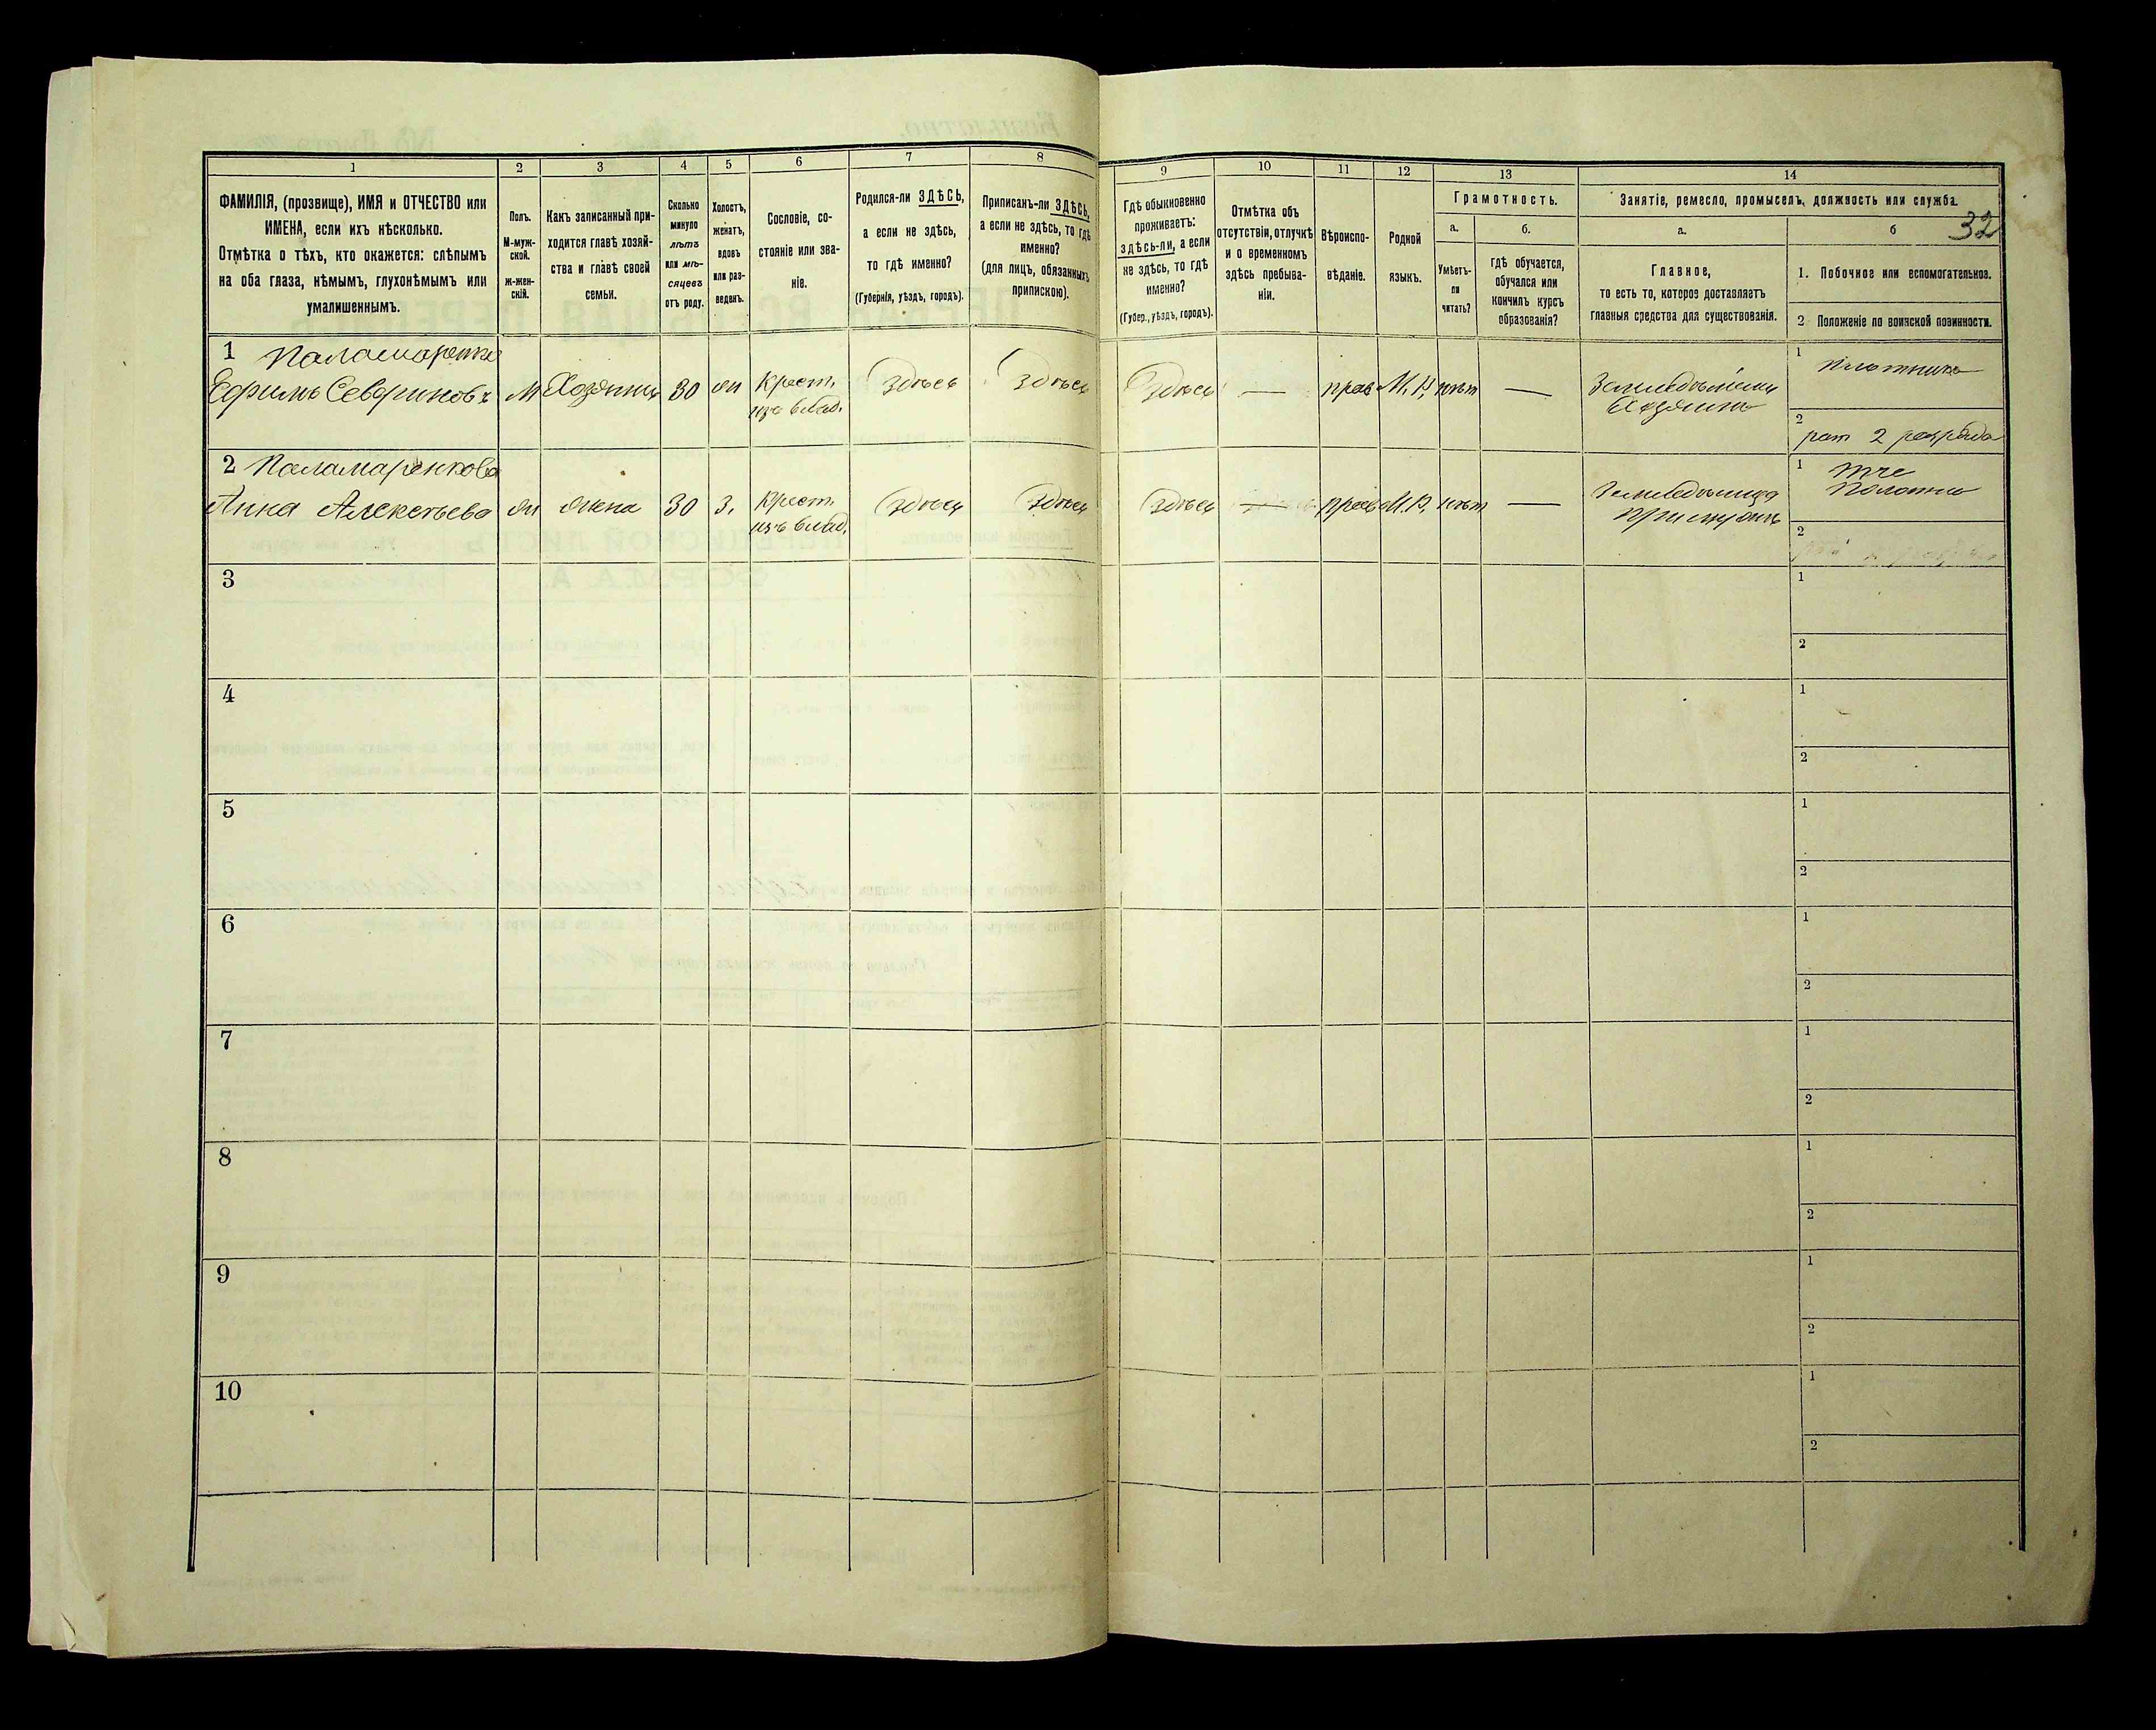 1
2
3
4
5
6
7
8
ФАМИЛІЯ, (прозвище), ИМЯ и ОТЧЕСТВО или
ИМЕНА, если ихъ нѣсколько.
Отмѣтка о тѣхъ, кто окажется: слѣпымъ
на оба глаза, нѣмымъ, глухонѣмымъ или
умалишеннымъ.
Полъ.
М-муж-
ской.
ж-жен-
скій.
Какъ записанный при-
ходится главѣ хозяй-
ства и главѣ своей
семьи.
Сколько
минуло
лѣтъ
или мѣ-
сяцевъ
отъ роду.
Холостъ,
женатъ,
вдовъ
или раз-
веденъ.
Сословіе, со-
стояніе или зва-
ніе.
Родился-ли ЗДѢСЬ,
а если не здѣсь,
то гдѣ именно?
(Губернія, уѣздъ, городъ).
Приписанъ-ли ЗДѢСЬ,
а если не здѣсь, то гдѣ
именно?
(для лицъ, обязанныхъ
припискою).
9
10
11
12
13
14
Гдѣ обыкновенно
проживаетъ:
здѣсь-ли, а если
не здѣсь, то гдѣ
именно?
(Губер., уѣздъ, городъ).
Отмѣтка объ
отсутствіи, отлучкѣ
и о временномъ
здѣсь пребыва-
ніи.
Вѣроиспо-
вѣданіе.
Родной
языкъ.
Грамотность.
а.
б.
Умѣетъ-
ли
читать?
гдѣ обучается,
обучался или
кончилъ курсъ
образованія?
Занятіе, ремесло, промыселъ, должность или служба.
32
а.
б
Главное,
то есть то, которое доставляетъ
главныя средства для существованія.
1. Побочное или вспомогательное.
2 Положеніе по воинской повинности.
1 Паламаренко
Ефимъ Севериновъ
М
Хозяинъ
30
жн
Крест.
изъ влад.
Здѣсь
Здѣсь
Здѣсь
—
прав
М. Р.
нѣт
—
Хозяинъ
1
Плотникъ
2
рат 2 разряда
2 Паламаренкова
Анна Алексѣева
жн
жена
30
З.
Крест.
изъ влад.
Здѣсь
Здѣсь
Здѣсь
—
прав
М. Р.
нѣт
—
1
Полотно
2
3
1
2
4
1
2
5
1
2
6
1
2
7
1
2
8
1
2
9
1
2
10
1
2